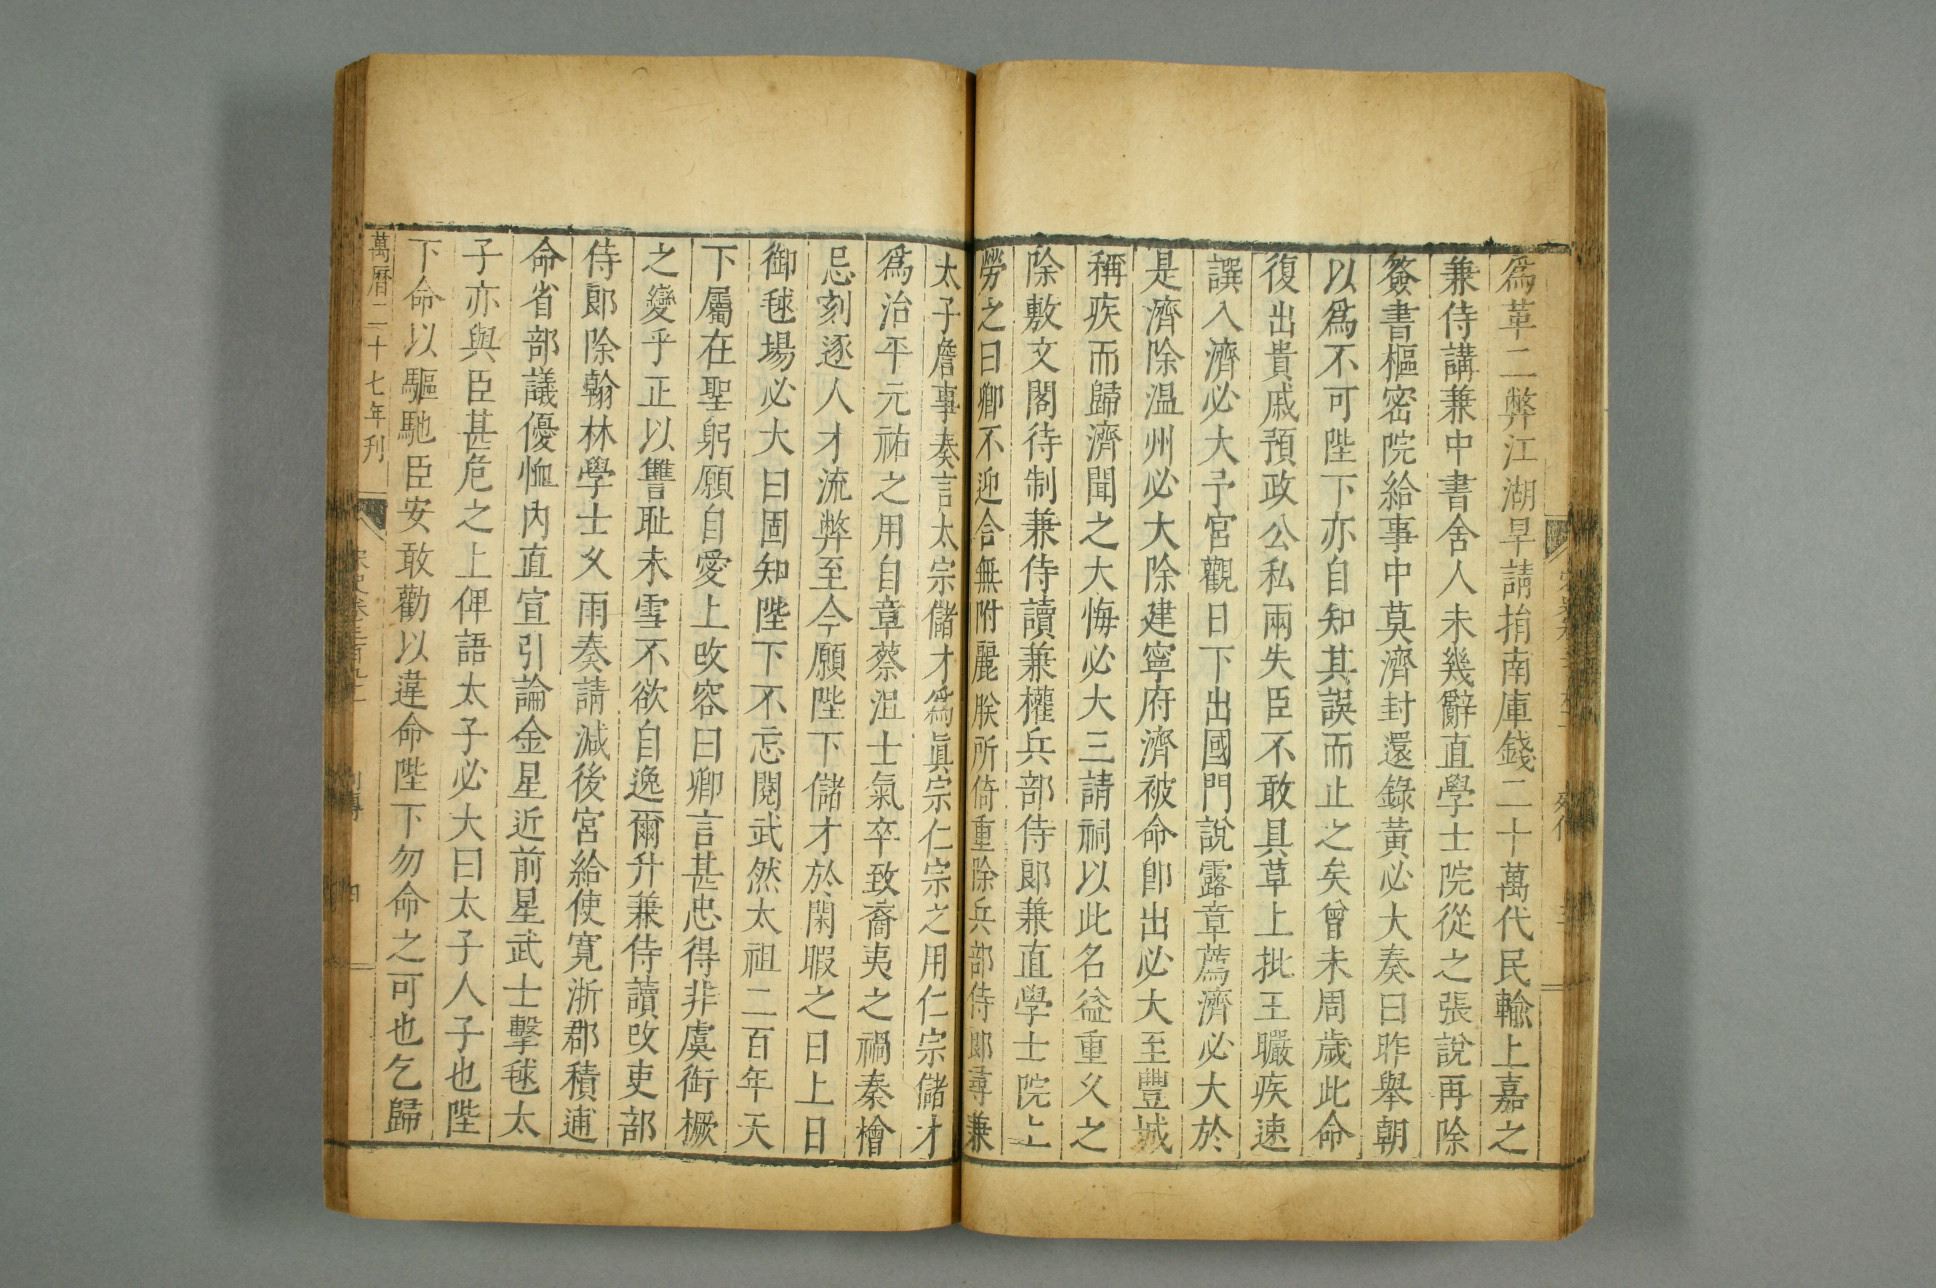 爲革二弊江湖旱請捐南庫錢二十萬代民輸上嘉之
兼侍講兼中書舍人未幾辭直學士院從之張說再除
簽書樞密院給事中莫濟封還錄黃必大奏曰昨舉朝
以爲不可陛下亦自知其誤而止之矣曾未周歲此命
復出貴戚預政公私兩失臣不敢具草上批王曮疾速
譔入濟必大予宮觀日下出國門說露章薦濟必大於
是濟除温州必大除建寧府濟被命卽出必大至豐城
稱疾而歸濟聞之大悔必大三請祠以此名益重久之
除敷文閣待制兼侍讀兼權兵部侍郞兼直學士院上
勞之曰卿不迎合無附麗朕所倚重除兵部侍郞尋兼
太子詹事奏言太宗儲才爲眞宗仁宗之用仁宗儲才
爲治平元祐之用自章蔡沮士氣卒致裔夷之禍秦檜
忌刻逐人才流弊至今願陛下儲才於閑暇之日上日
御毬場必大曰固知陛下不忘閱武然太祖二百年天
下屬在聖躬願自愛上改容曰卿言甚忠得非虞銜橛
之變乎正以讐耻未雪不欲自逸爾升兼侍讀改吏部
侍郞除翰林學士久雨奏請減後宮給使寬浙郡積逋
命省部議優恤內直宣引論金星近前星武士擊毬太
子亦與臣甚危之上俾語太子必大曰太子人子也陛
下命以驅馳臣安敢勸以違命陛下勿命之可也乞歸
萬曆二十七年刊
宋史卷三百九十一 列傳 四